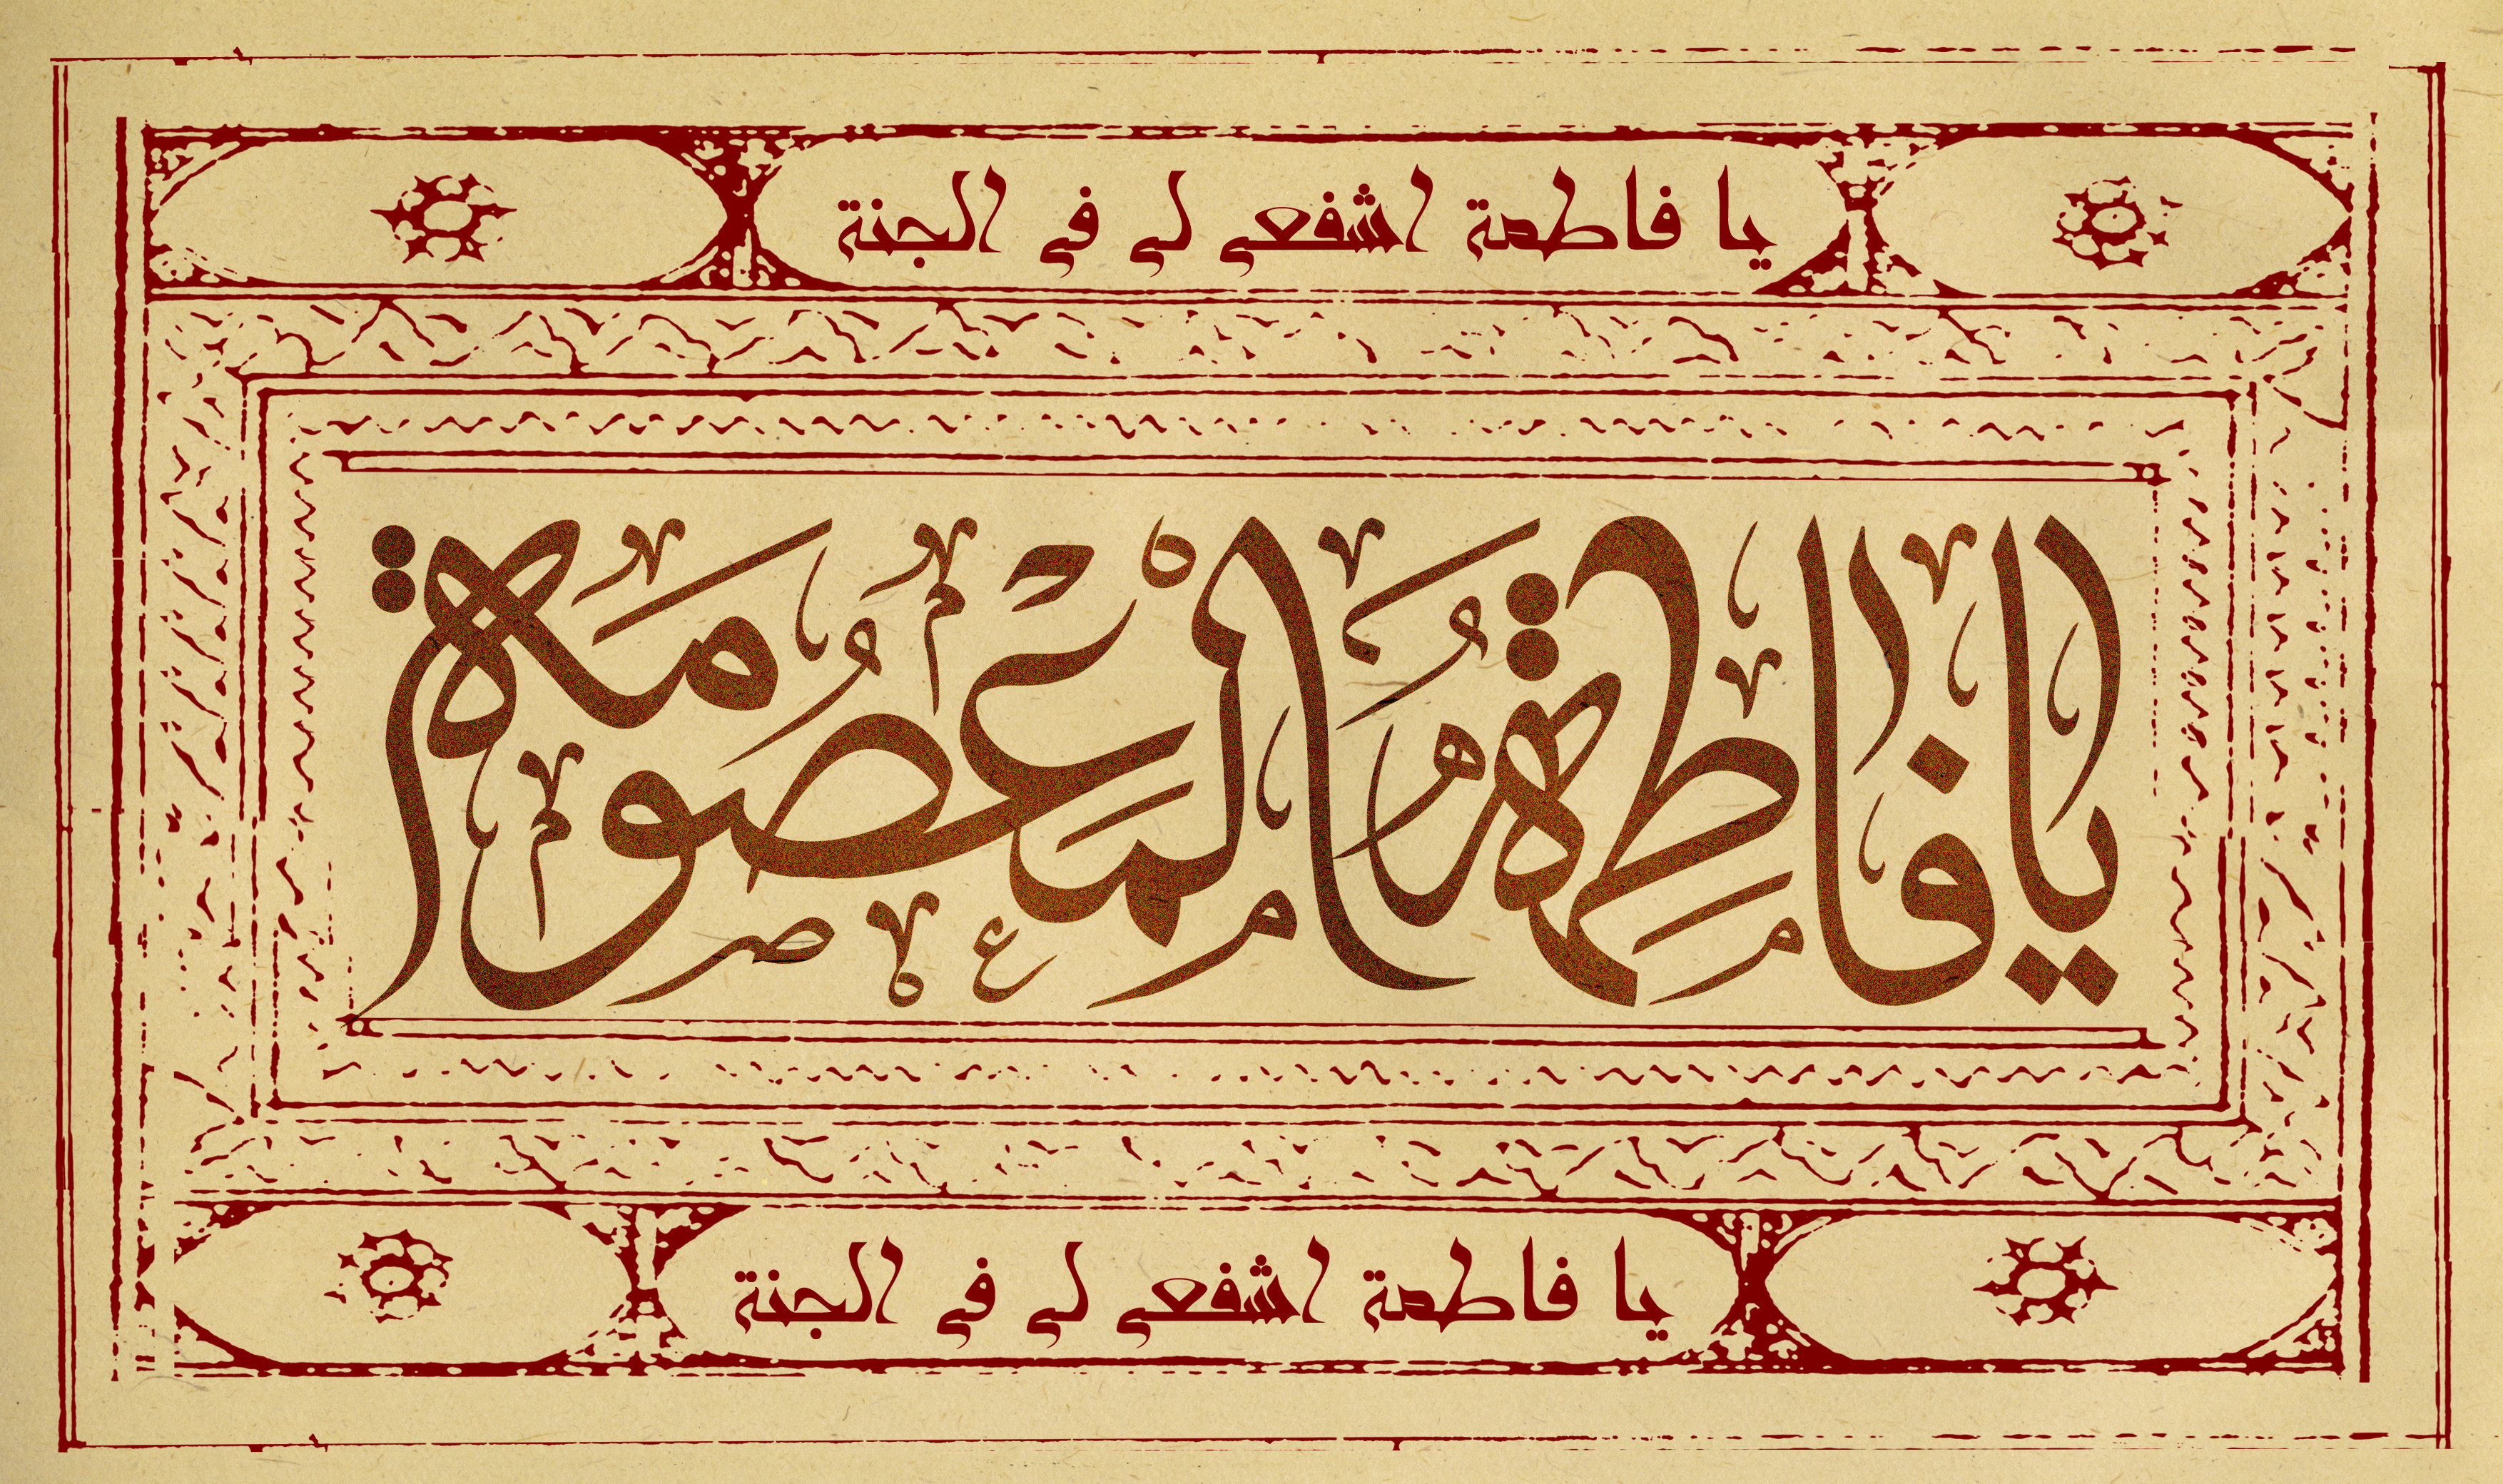 يا فاطمة اشفعي لي في الجنة
يا فاطمة المعصومة
يا فاطمة اشفعي لي في الجنة